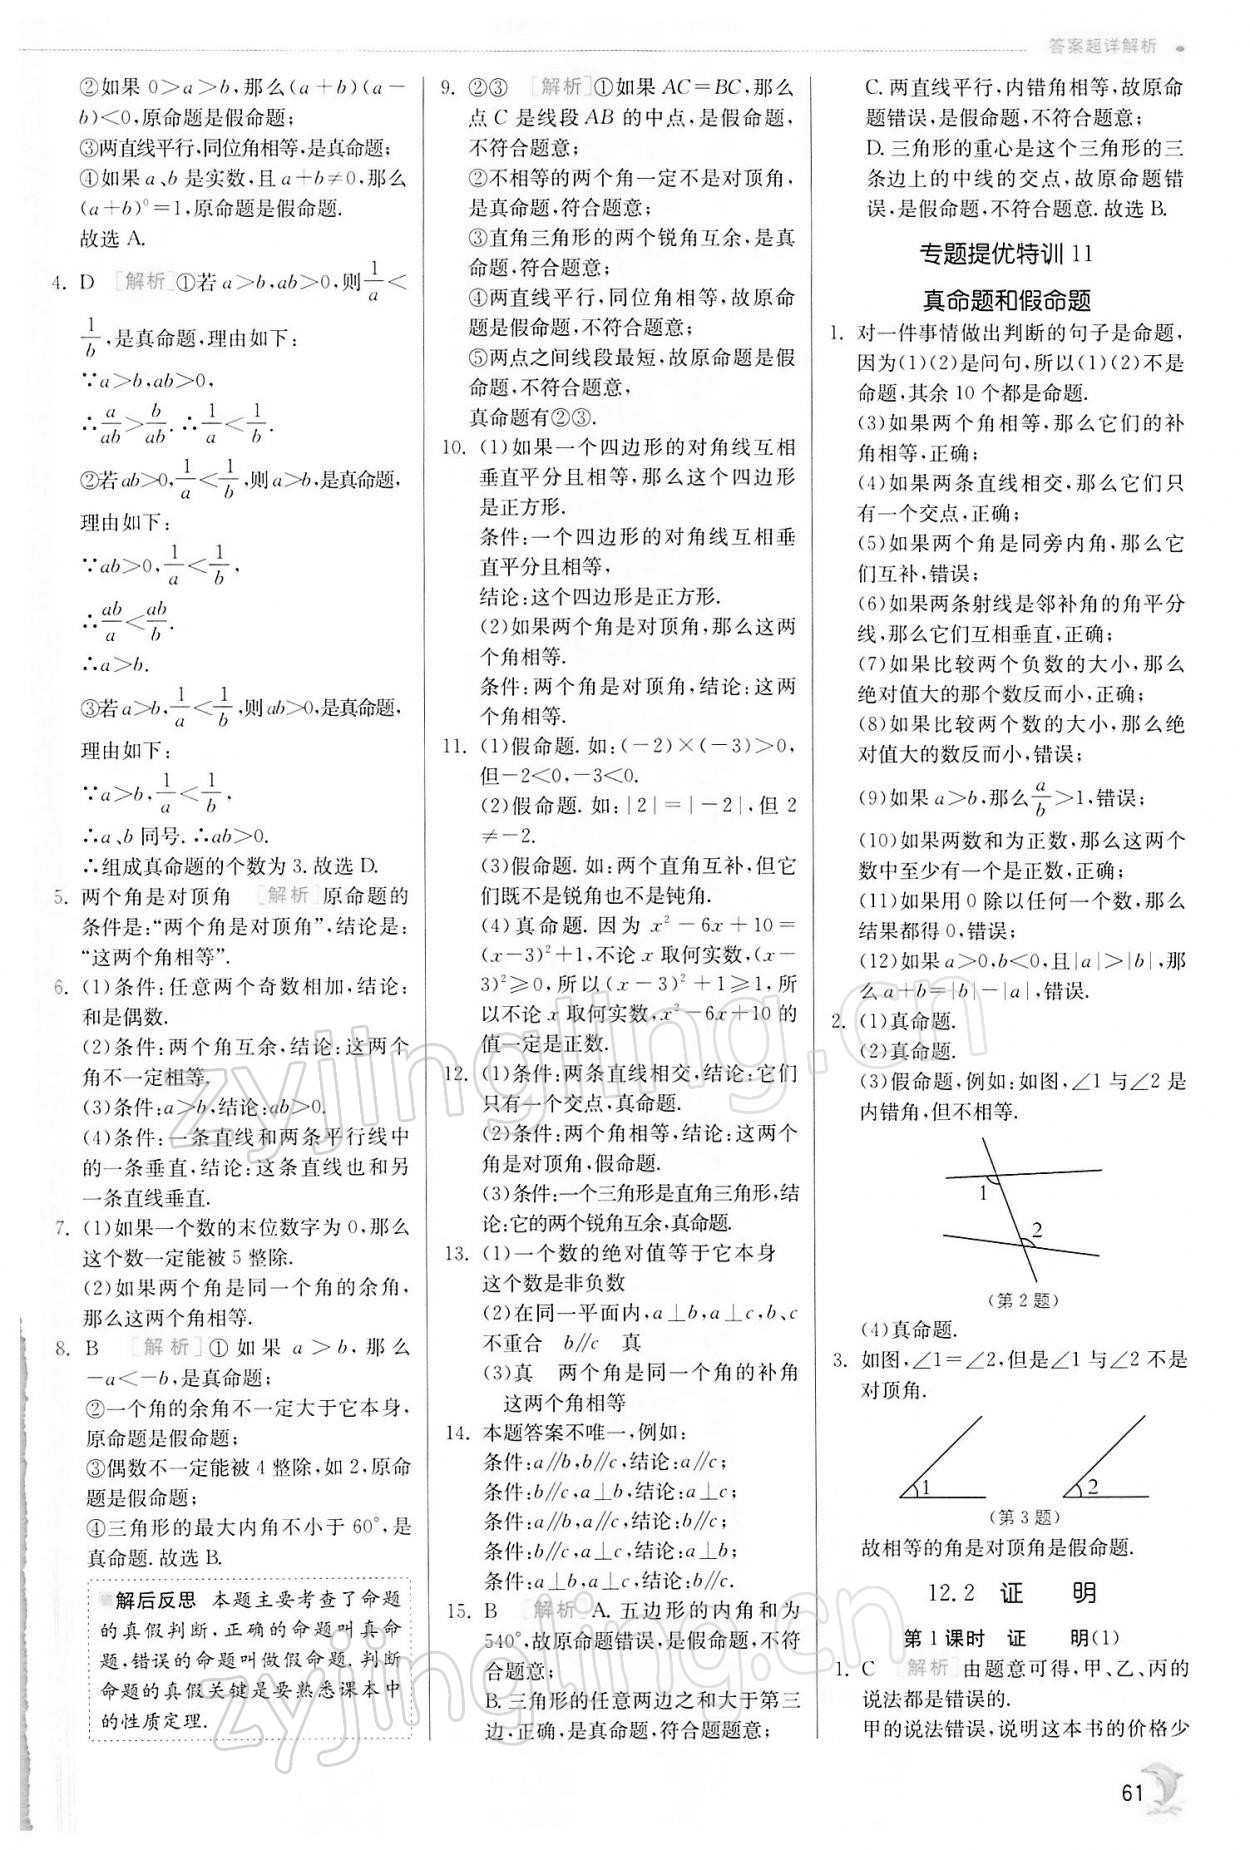 答案超详解析
②如果 0＞a＞b,那么(a＋b)(a－
b)＜0,原命题是假命题;
③两直线平行,同位角相等,是真命题;
④如果 a、b 是实数,且 a＋b≠0,那么
(a＋b)⁰＝1,原命题是假命题.
故选 A.
4. D [解析]①若 a＞b,ab＞0,则1/a＜
1/b,是真命题,理由如下:
∵a＞b,ab＞0,
∴a/ab＞b/ab. ∴1/a＜1/b.
②若 ab＞0,1/a＜1/b,则 a＞b,是真命题,
理由如下:
∵ab＞0,1/a＜1/b,
∴ab/a＜ab/b.
∴a＞b.
③若 a＞b,1/a＜1/b,则 ab＞0,是真命题,
理由如下:
∵a＞b,1/a＜1/b,
∴a、b 同号. ∴ab＞0.
∴组成真命题的个数为 3. 故选 D.
5. 两个角是对顶角 [解析]原命题的
条件是:“两个角是对顶角”,结论是:
“这两个角相等”.
6. (1)条件:任意两个奇数相加,结论:
和是偶数.
(2)条件:两个角互余,结论:这两个
角不一定相等.
(3)条件:a＞b,结论:ab＞0.
(4)条件:一条直线和两条平行线中
的一条垂直,结论:这条直线也和另
一条直线垂直.
7. (1)如果一个数的末位数字为 0,那么
这个数一定能被 5 整除.
(2)如果两个角是同一个角的余角,
那么这两个角相等.
8. B [解析]①如果 a＞b,那么
－a＜－b,是真命题;
②一个角的余角不一定大于它本身,
原命题是假命题;
③偶数不一定能被 4 整除,如 2,原命
题是假命题;
④三角形的最大内角不小于 60°,是
真命题. 故选 B.
解后反思 本题主要考查了命题
的真假判断,正确的命题叫真命
题,错误的命题叫做假命题. 判断
命题的真假关键是要熟悉课本中
的性质定理.
9. ②③ [解析]①如果 AC＝BC,那么
点 C 是线段 AB 的中点,是假命题,
不符合题意;
②不相等的两个角一定不是对顶角,
是真命题,符合题意;
③直角三角形的两个锐角互余,是真
命题,符合题意;
④两直线平行,同位角相等,故原命
题是假命题,不符合题意;
⑤两点之间线段最短,故原命题是假
命题,不符合题意,
真命题有②③.
10. (1)如果一个四边形的对角线互相
垂直平分且相等,那么这个四边形
是正方形.
条件:一个四边形的对角线互相垂
直平分且相等,
结论:这个四边形是正方形.
(2)如果两个角是对顶角,那么这两
个角相等.
条件:两个角是对顶角,结论:这两
个角相等.
11. (1)假命题. 如:(－2)×(－3)＞0,
但－2＜0,－3＜0.
(2)假命题. 如:|2|＝|－2|,但 2
≠－2.
(3)假命题. 如:两个直角互补,但它
们既不是锐角也不是钝角.
(4)真命题. 因为 x²－6x＋10＝
(x－3)²＋1,不论 x 取何实数,(x－
3)²≥0,所以(x－3)²＋1≥1,所
以不论 x 取何实数,x²－6x＋10 的
值一定是正数.
12. (1)条件:两条直线相交,结论:它们
只有一个交点,真命题.
(2)条件:两个角相等,结论:这两个
角是对顶角,假命题.
(3)条件:一个三角形是直角三角形,结
论:它的两个锐角互余,真命题.
13. (1)一个数的绝对值等于它本身
这个数是非负数
(2)在同一平面内,a⊥b,a⊥c,b、c
不重合 b∥c 真
(3)真 两个角是同一个角的补角
这两个角相等
14. 本题答案不唯一,例如:
条件:a∥b,b∥c,结论:a∥c;
条件:b∥c,a⊥b,结论:a⊥c;
条件:a∥b,a∥c,结论:b∥c;
条件:b∥c,a⊥c,结论:a⊥b;
条件:a⊥b,a⊥c,结论:b∥c.
15. B [解析]A. 五边形的内角和为
540°,故原命题错误,是假命题,不符
合题意;
B. 三角形的任意两边之和大于第三
边,正确,是真命题,符合题题意;
C. 两直线平行,内错角相等,故原命
题错误,是假命题,不符合题意;
D. 三角形的重心是这个三角形的三
条边上的中线的交点,故原命题错
误,是假命题,不符合题意. 故选 B.
专题提优特训 11
真命题和假命题
1. 对一件事情做出判断的句子是命题,
因为(1)(2)是问句,所以(1)(2)不是
命题,其余 10 个都是命题.
(3)如果两个角相等,那么它们的补
角相等,正确;
(4)如果两条直线相交,那么它们只
有一个交点,正确;
(5)如果两个角是同旁内角,那么它
们互补,错误;
(6)如果两条射线是邻补角的角平分
线,那么它们互相垂直,正确;
(7)如果比较两个负数的大小,那么
绝对值大的那个数反而小,正确;
(8)如果比较两个数的大小,那么绝
对值大的数反而小,错误;
(9)如果 a＞b,那么a/b＞1,错误;
(10)如果两数和为正数,那么这两个
数中至少有一个是正数,正确;
(11)如果用 0 除以任何一个数,那么
结果都得 0,错误;
(12)如果 a＞0,b＜0,且|a|＞|b|,那
么 a＋b＝|b|－|a|,错误.
2. (1)真命题.
(2)真命题.
(3)假命题,例如:如图,∠1 与∠2 是
内错角,但不相等.
1
2
(第 2 题)
(4)真命题.
3. 如图,∠1＝∠2,但是∠1 与∠2 不是
对顶角.
1
2
(第 3 题)
故相等的角是对顶角是假命题.
12.2 证 明
第 1 课时 证 明(1)
1. C [解析]由题意可得,甲、乙、丙的
说法都是错误的.
甲的说法错误,说明这本书的价格少
61
zyjingling.cn
zyjingling.cn